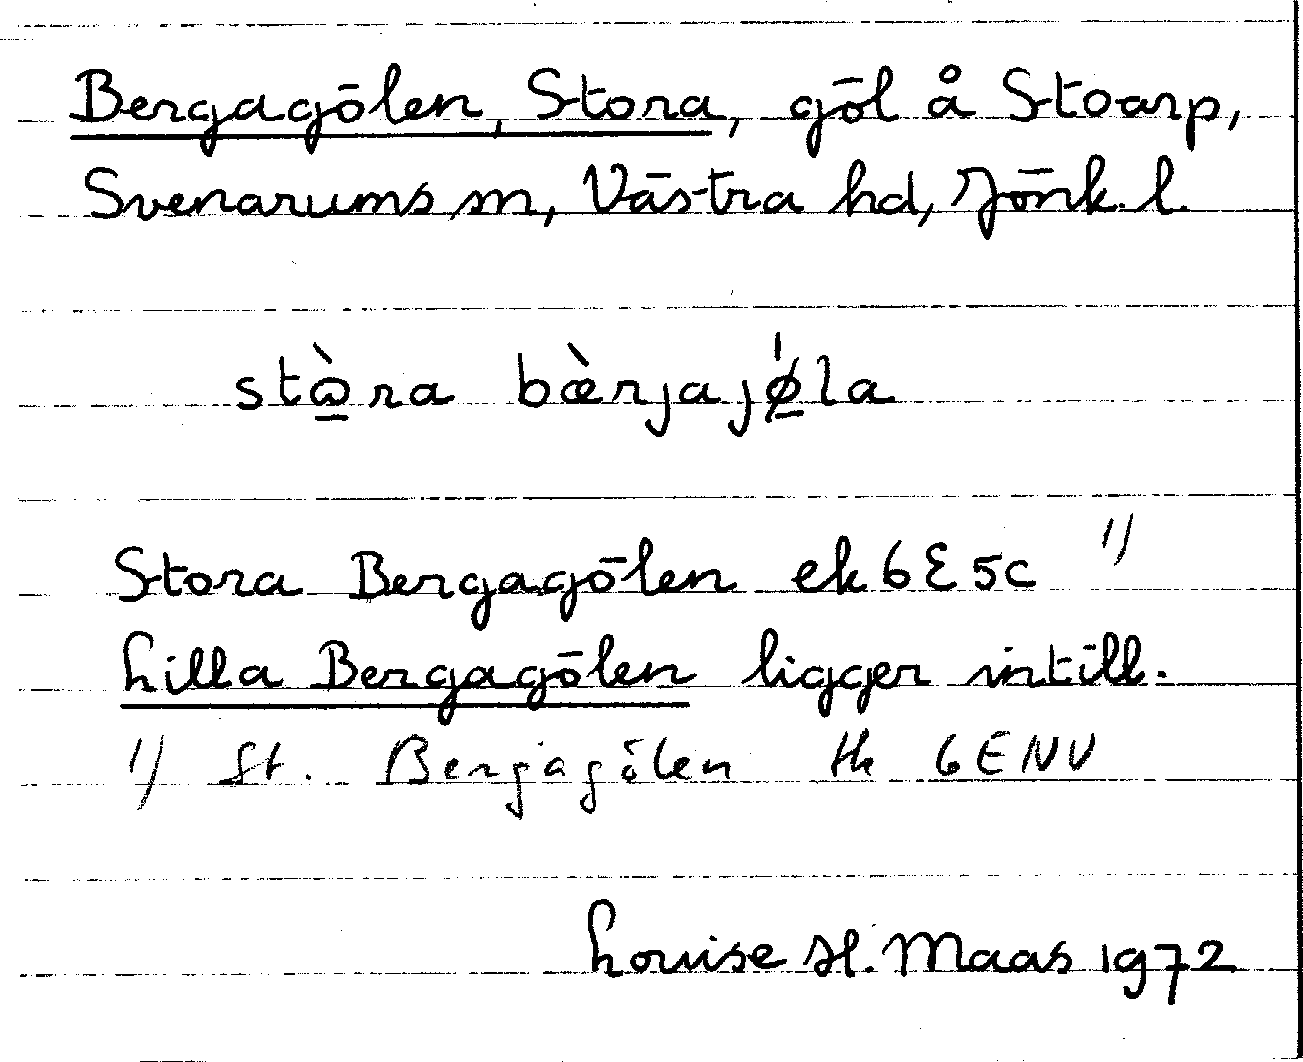 Bergagölen, Stora, göl å Stoarp,
Svenarums sn, Västra hd, Jönk. l.
stὼ̲ra bæ̀rjajǿ̲la
Stora Bergagölen ek 6E5c 1)
Lilla Bergagölen ligger intill.
1) St. Bergagölen tk 6ENV
Louise H. Maas 1972